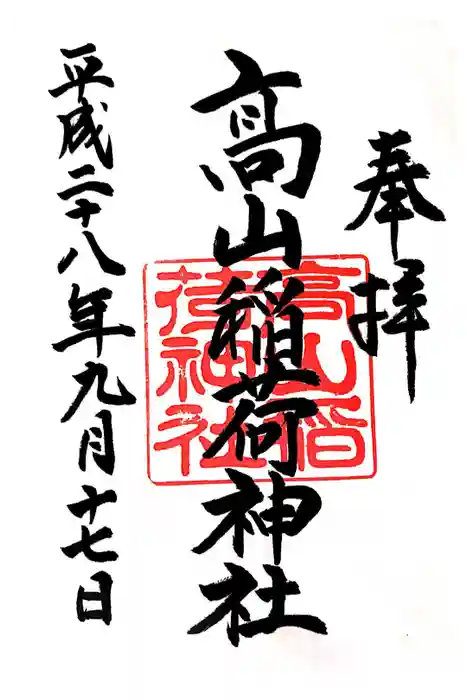 奉拝
高山稲荷神社
高山稲
荷神社
平成二十八年九月十七日